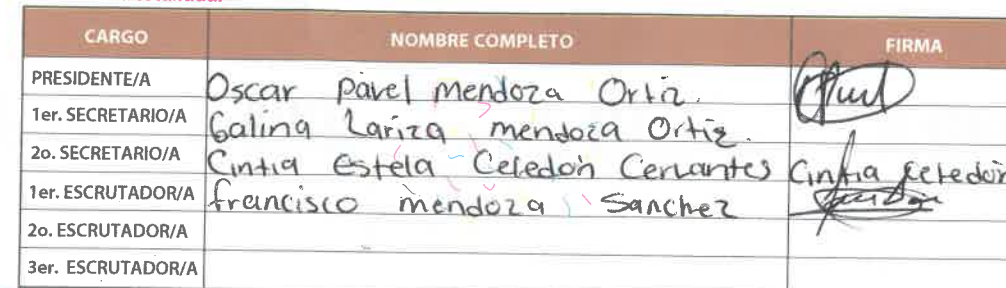 CARGO NOMBRE COMPLETO FIRMA
PRESIDENTE/A Oscar Pavel mendoza Ortiz.
1er. SECRETARIO/A Galina Lariza mendoza Ortiz.
2o. SECRETARIO/A Cintia Estela Celedón Cervantes Cintia Celedón
1er. ESCRUTADOR/A francisco mendoza Sanchez
2o. ESCRUTADOR/A
3er. ESCRUTADOR/A